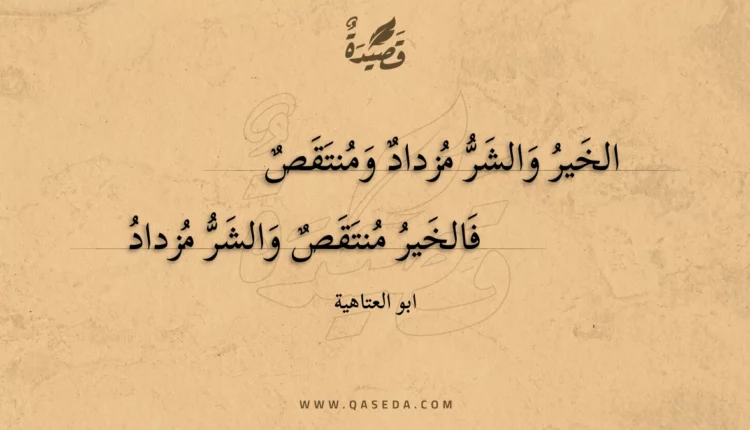 قَصِيْدَةٌ
الخَيرُ وَالشَرُّ مُزدادٌ وَمُنتَقَصٌ
فَالخَيرُ مُنتَقَصٌ وَالشَرُّ مُزدادُ
ابو العتاهية
WWW.QASEDA.COM